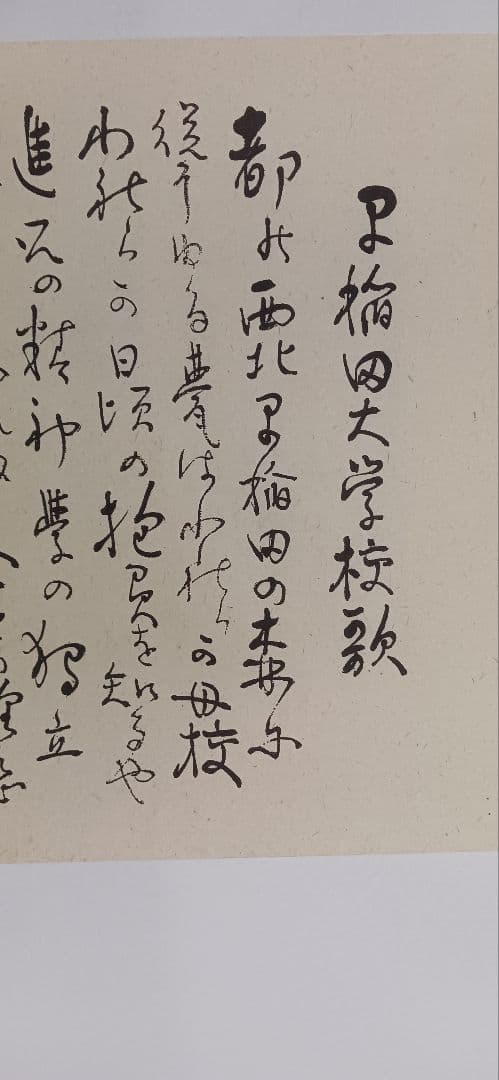 早稲田大学校歌
都の西北早稲田の森尓
聳ゆる甍はわれらの母校
われらの日頃の抱負を知るや
進取の精神學の独立